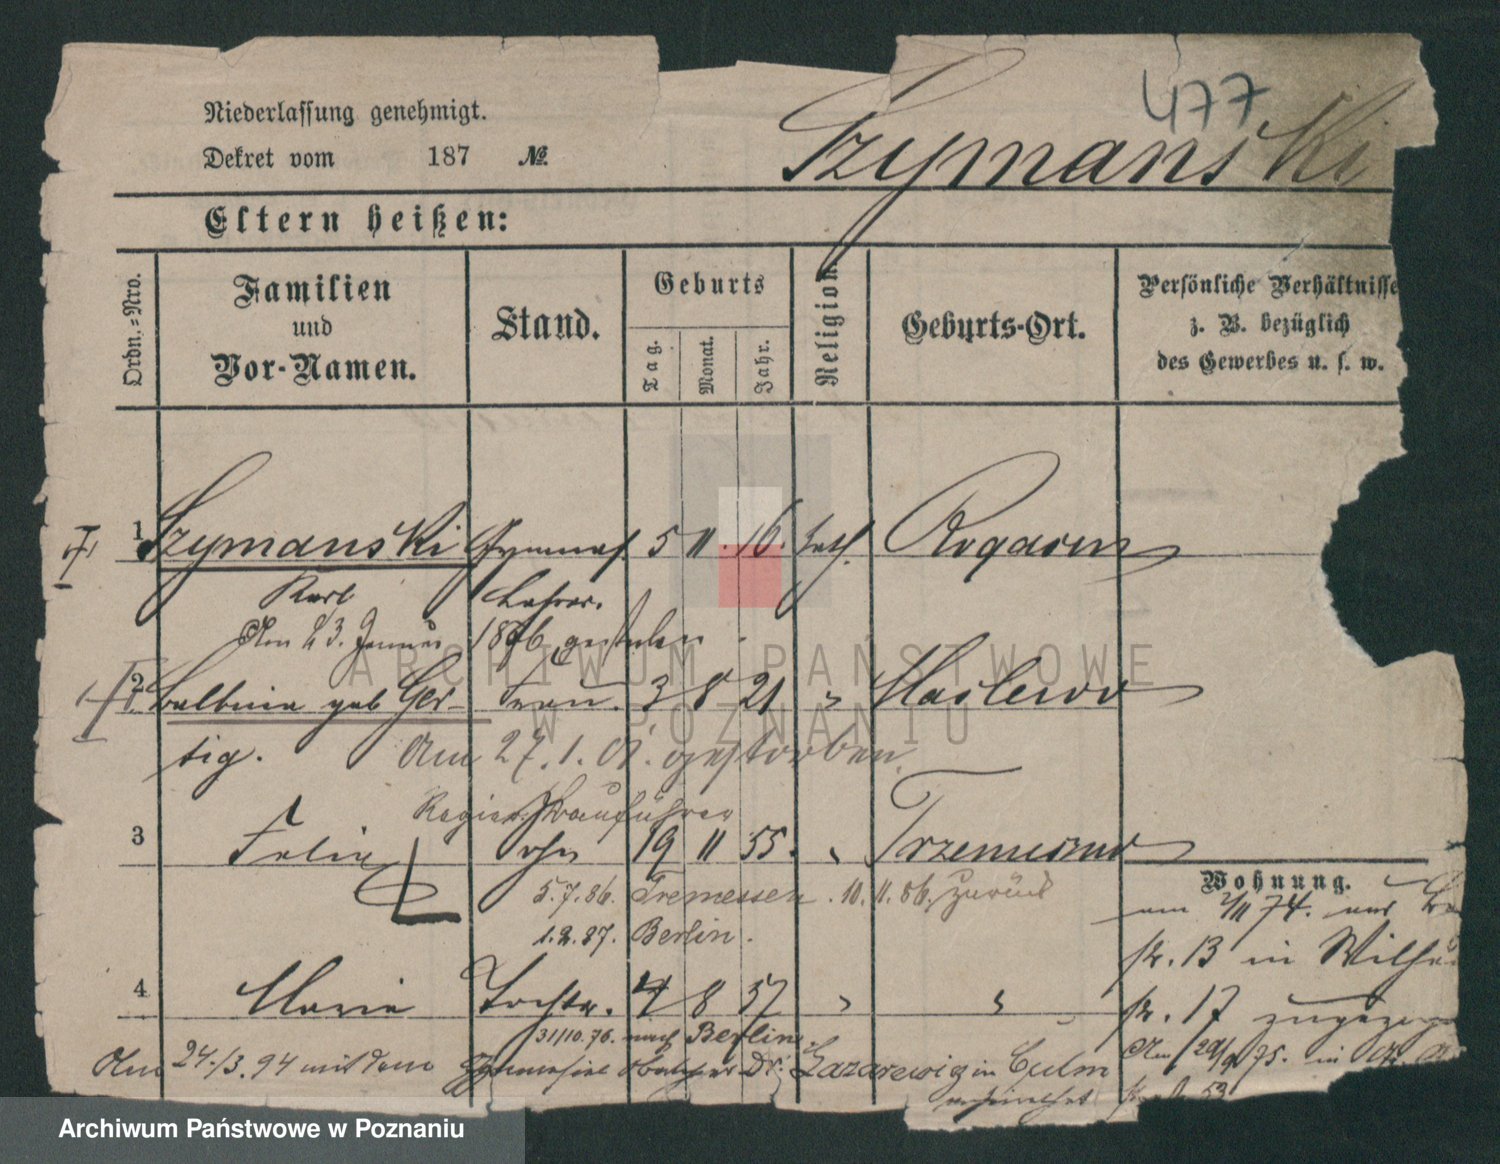 477
Niederlassung genehmigt.
Dekret vom 187 №
Szymanski
Eltern heißen:
Ordn.=Nro.
Familien und Vor-Namen.
Stand.
Geburts
Tag.
Monat.
Jahr.
Religion.
Geburts-Ort.
Persönliche Verhältnisse
z. B. bezüglich
des Gewerbes u. s. w.
1 Szymanski Gymnas. 5 11. 16. kath. Rogasen
Karl Lehrer.
Am 23. Januar 1876 gestorben
2 Balbina geb Ger- Frau. 3 8 21 "
tig. Am 27.1.01. gestorben.
Regier. Bauführer
3 Felix Sohn 19 11 55. " Trzemeszno
5.7.86. Tremessen. 10.11.86. zurück
1.2.87. Berlin.
4 Marie Tochter. 4 8 57 " "
31/10.76. nach Berlin.
Am 24./3.94 mit dem Gymnasial Dr: Lazarewicz in Culm
verheirathet
Wohnung.
am 2/11 74. aus
str. 13 in Wilhe
str. 17 zugezoge
Am 75. in
53
ARCHIWUM PAŃSTWOWE
W POZNANIU
Archiwum Państwowe w Poznaniu